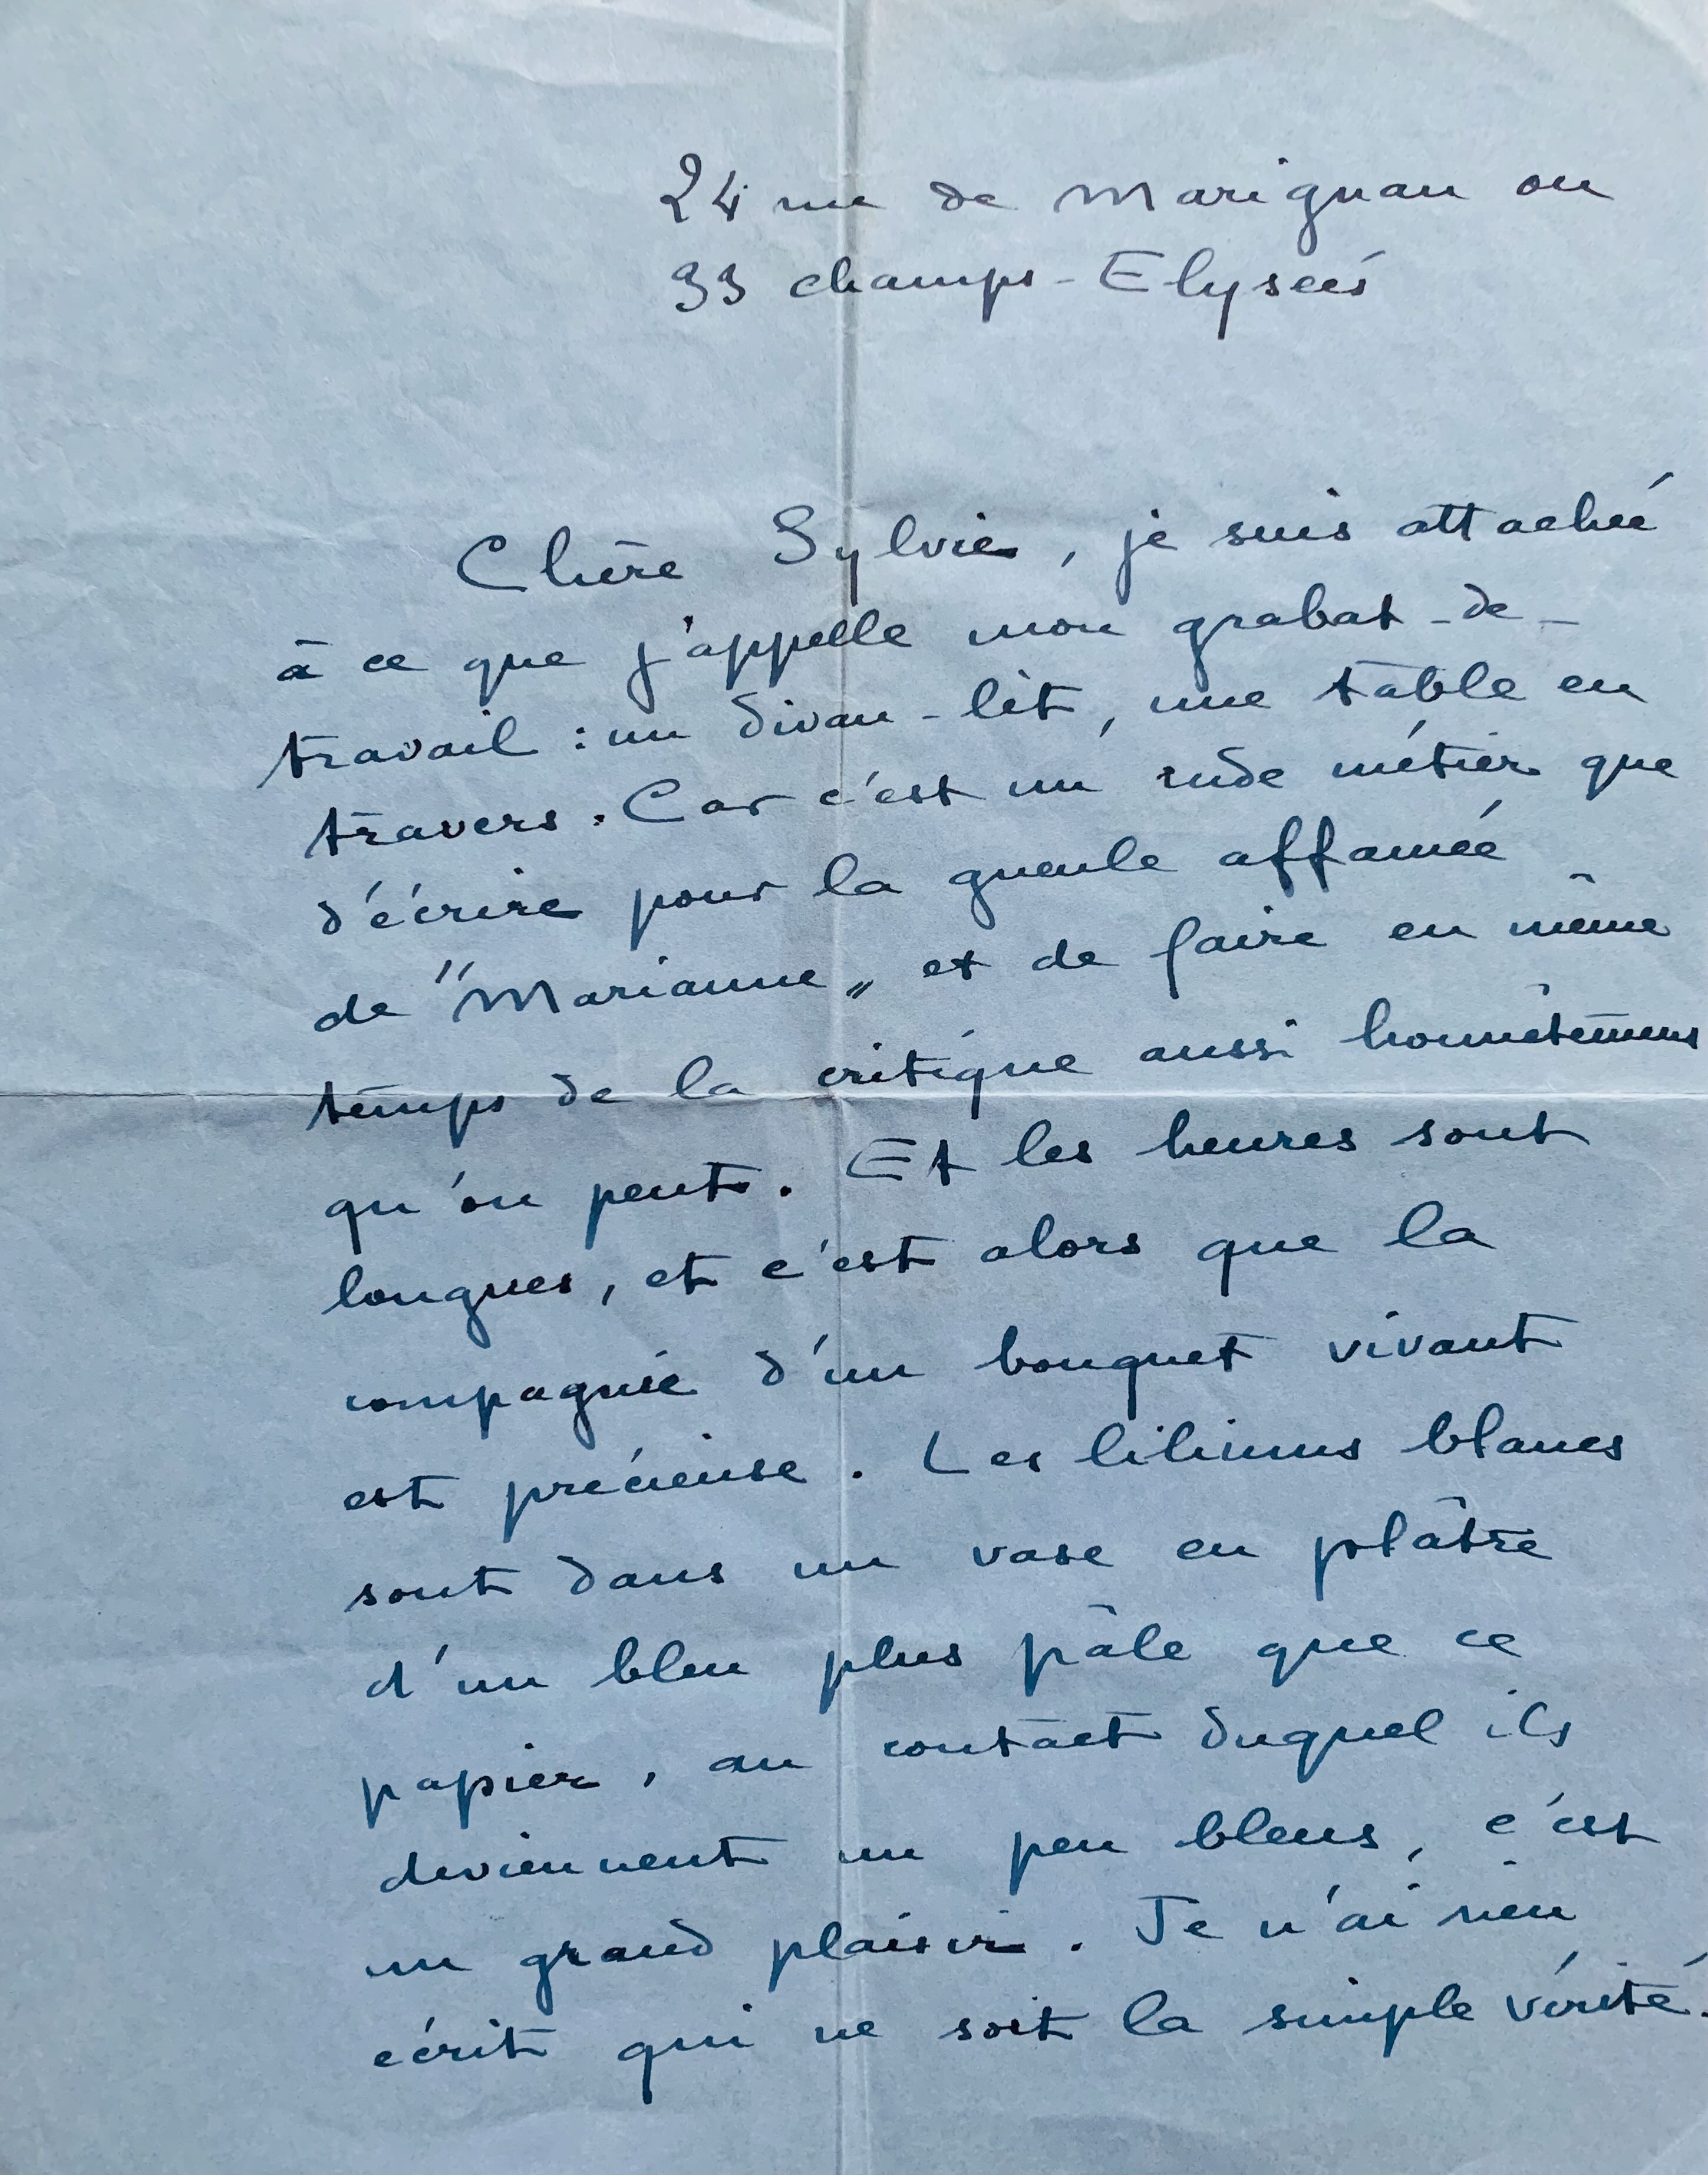 24 rue de Marignan ou
33 champs-Elysées
Chère Sylvie, je suis attachée
à ce que j'appelle mon grabat-de-
travail : un divan-lit, une table en
travers. Car c'est un rude métier que
d'écrire pour la gueule affamée
de "Marianne" et de faire en même
temps de la critique aussi honnêtement
qu'on peut. Et les heures sont
longues, et c'est alors que la
compagnie d'un bouquet vivant
est précieuse. Les liliums blancs
sont dans un vase en plâtre
d'un bleu plus pâle que ce
papier, au contact duquel ils
deviennent un peu bleus, c'est
un grand plaisir. Je n'ai rien
écrit qui ne soit la simple vérité.